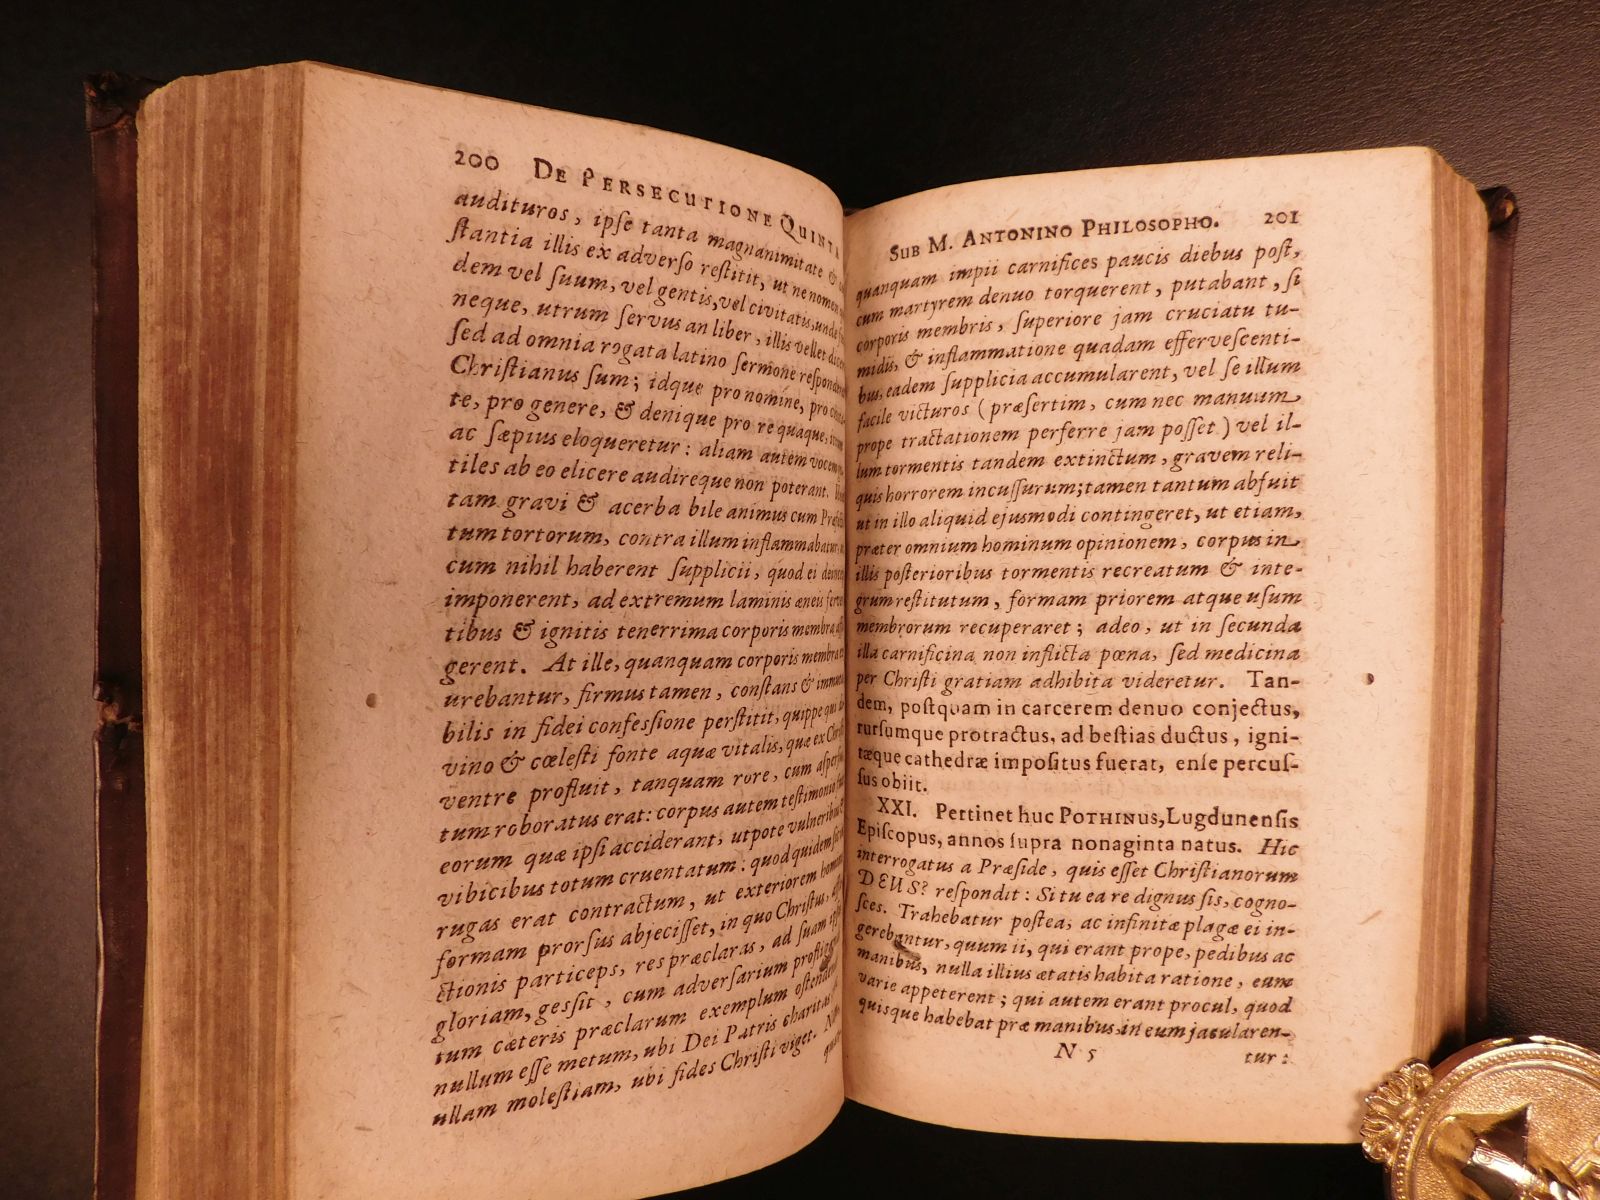 200 DE PERSECUTIONE QUINTA
audituros, ipſe tanta magnanimitate &
ſtantia illis ex adverſo reſtitit, ut ne nomen
dem vel ſuum, vel gentis, vel civitatis, unde
neque, utrum ſervus an liber, illis vellet
ſed ad omnia rogata latino ſermone
Chriſtianus ſum; idque pro nomine, pro
te, pro genere, & denique pro re quaque,
ac ſæpius eloqueretur: aliam autem vocem
tiles ab eo elicere audireque non poterant.
tam gravi & acerba bile animus cum
tum tortorum, contra illum inflammabatur,
cum nihil haberent ſupplicii, quod ei
imponerent, ad extremum laminis æneis
tibus & ignitis tenerrima corporis membra
gerent. At ille, quanquam corporis membra
urebantur, firmus tamen, conſtans &
bilis in fidei confeſſione perſtitit, quippe qui
vino & cœleſti fonte aquæ vitalis, quæ ex
ventre profluit, tanquam rore, cum
tum roboratus erat: corpus autem teſtimonio
eorum quæ ipſi acciderant, utpote vulneribus
vibicibus totum cruentatum: quod quidem
rugas erat contractum, ut exteriorem
formam prorſus abjeciſſet, in quo Chriſtus,
ctionis particeps, res præclaras, ad ſuam
gloriam, geſſit, cum adverſarium
tum cæteris præclarum exemplum
nullum eſſe metum, ubi Dei Patris charitas
ullam moleſtiam, ubi fides Chriſti viget.
SUB M. ANTONINO PHILOSOPHO. 201
quanquam impii carnifices paucis diebus poſt,
cum martyrem denuo torquerent, putabant, ſi
corporis membris, ſuperiore jam cruciatu tu-
midis, & inflammatione quadam efferveſcenti-
bus, eadem ſupplicia accumularent, vel ſe illum
facile victuros (præſertim, cum nec manuum
prope tractationem perferre jam poſſet) vel il-
lum tormentis tandem extinctum, gravem reli-
quis horrorem incuſſurum; tamen tantum abfuit
ut in illo aliquid ejusmodi contingeret, ut etiam,
præter omnium hominum opinionem, corpus in
illis poſterioribus tormentis recreatum & inte-
grum reſtitutum, formam priorem atque uſum
membrorum recuperaret; adeo, ut in ſecunda
illa carnificina non inflicta pœna, ſed medicina
per Chriſti gratiam adhibita videretur. Tan-
dem, poſtquam in carcerem denuo conjectus,
rurſumque protractus, ad beſtias ductus, igni-
tæque cathedræ impoſitus fuerat, enſe percuſ-
ſus obiit.
XXI. Pertinet huc POTHINUS, Lugdunenſis
Epiſcopus, annos ſupra nonaginta natus. Hic
interrogatus a Præſide, quis eſſet Chriſtianorum
DEUS? reſpondit: Si tu ea re dignus ſis, cogno-
ſces. Trahebatur poſtea, ac infinitæ plagæ ei in-
gerebantur, quum ii, qui erant prope, pedibus ac
manibus, nulla illius ætatis habita ratione, eum
varie appeterent; qui autem erant procul, quod
quisque habebat præ manibus, in eum jacularen-
N 5 tur: